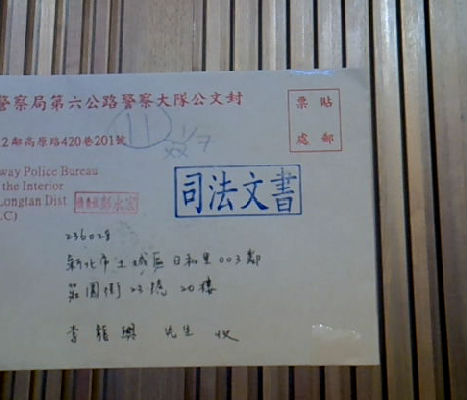 警察局第六公路警察大隊公文封
2鄰高原路420巷201號
way Police Bureau
the Interior
Longtan Dist
.C)
貼票
郵處
11
1/7
司法文書
236028
新北市土城區日和里003鄰
莊園街23號20樓
李龍興 先生 收